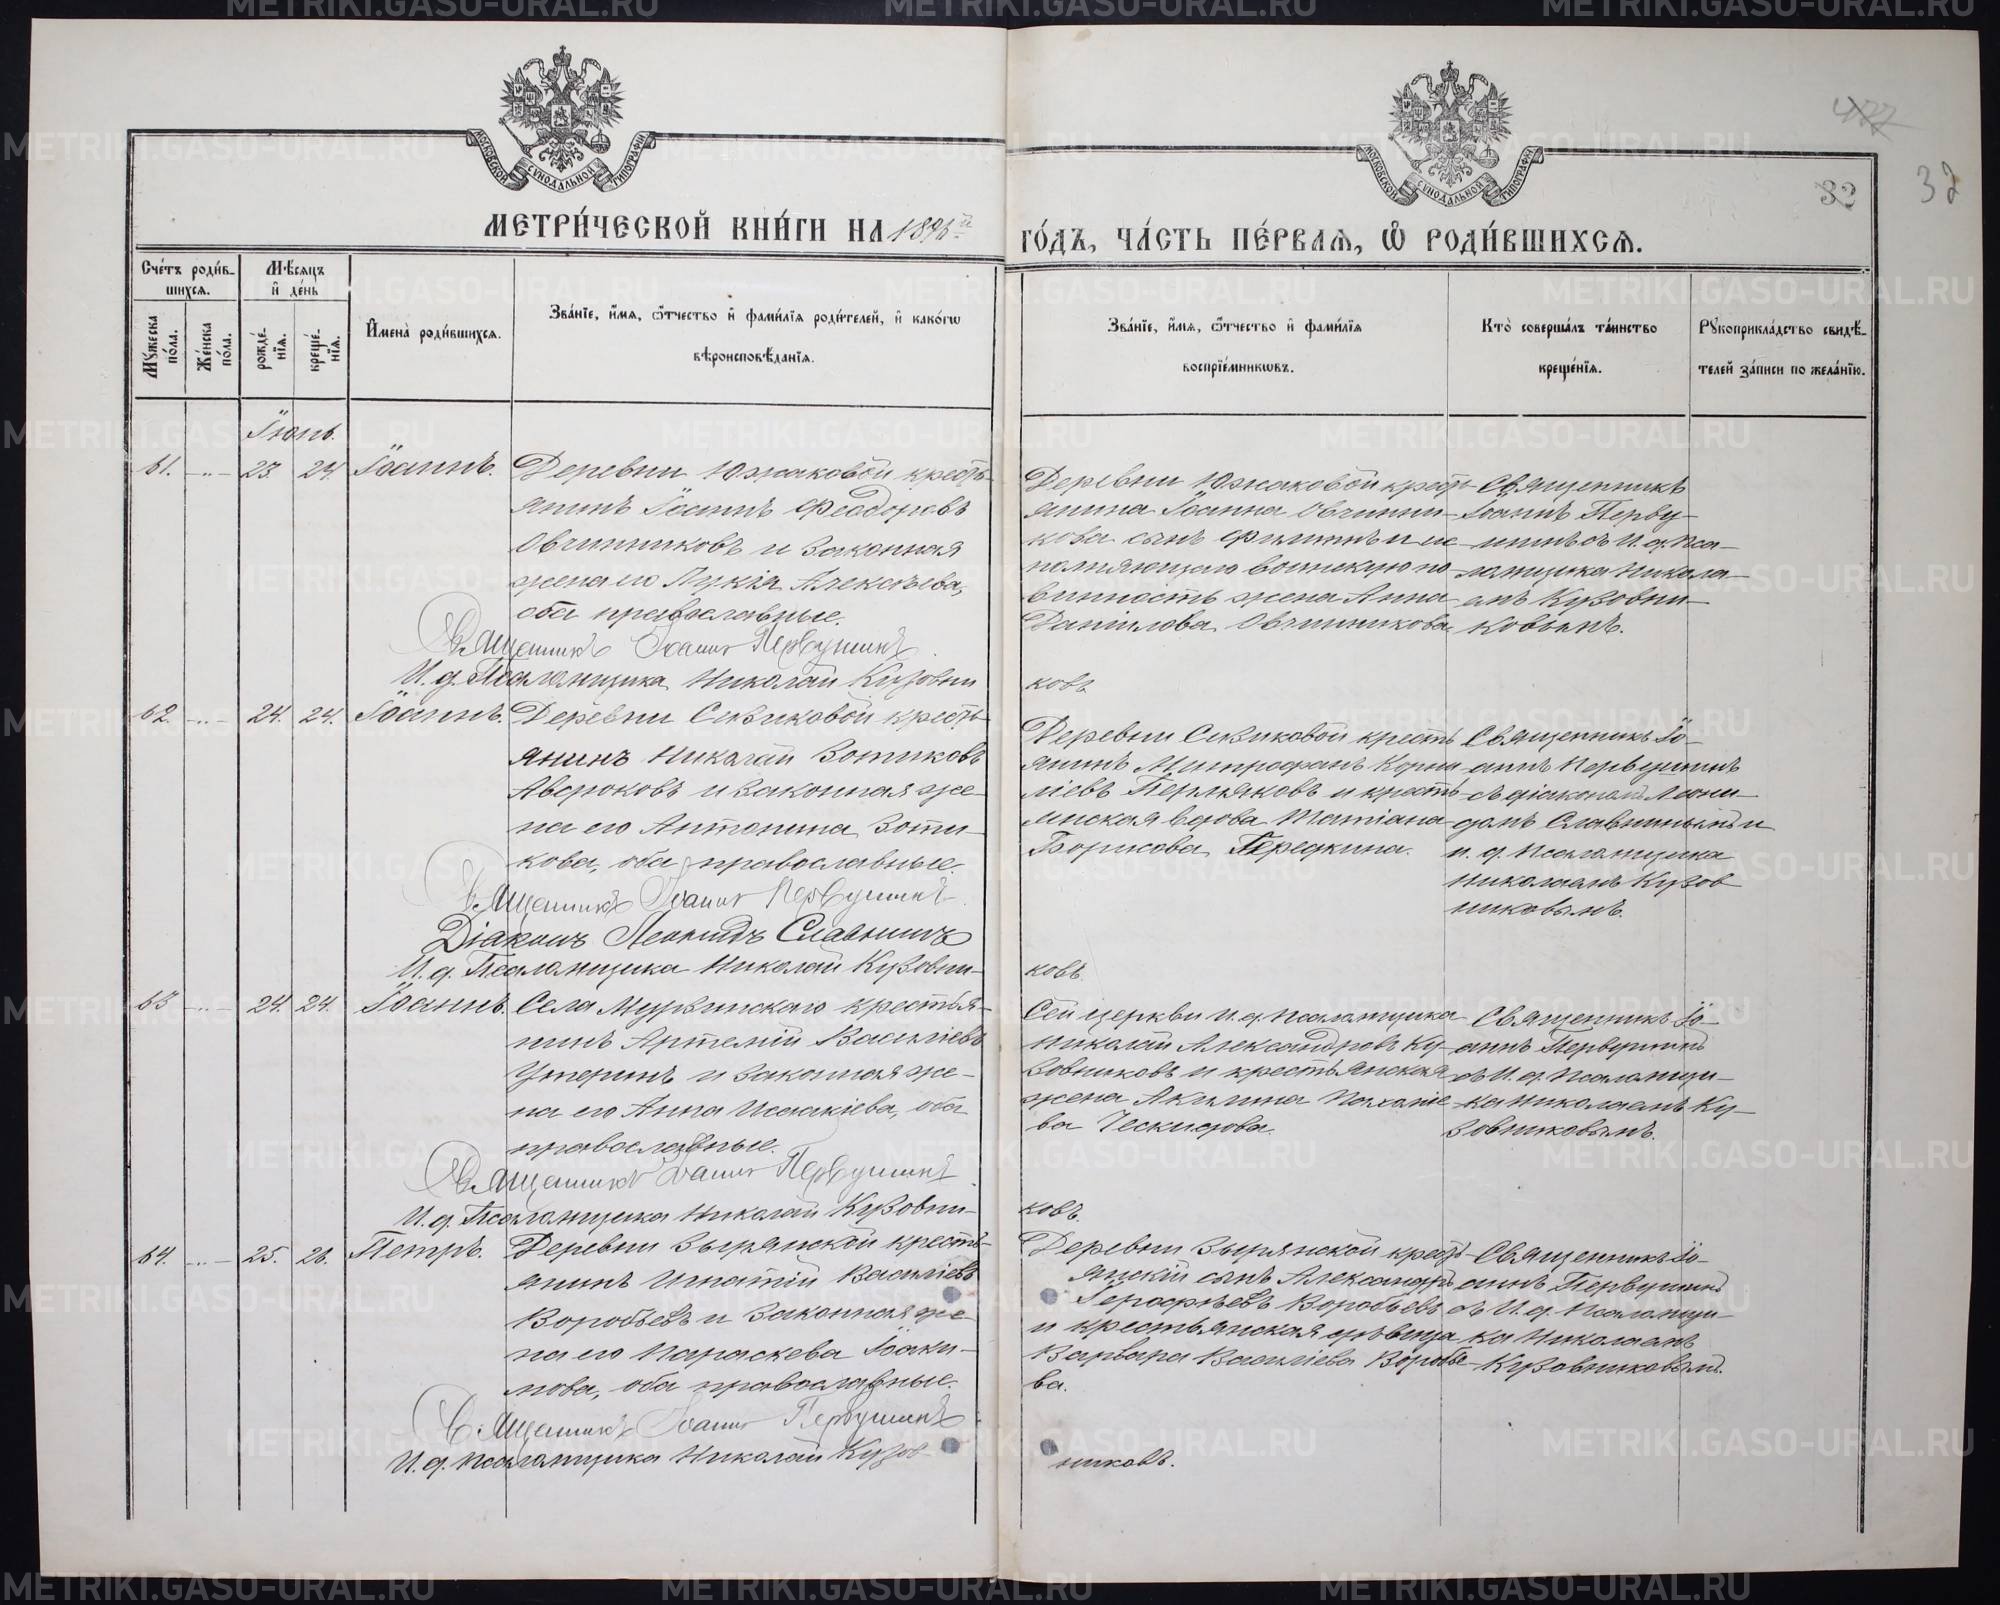 МОСКОВСКОЙ СѴНОДАЛЬНОЙ ТИПОГРАФІИ
МОСКОВСКОЙ СѴНОДАЛЬНОЙ ТИПОГРАФІИ
32
32
МЕТРИ́ЧЕСКОЙ КНИ́ГИ НА 1896й
ГО́ДЪ, ЧА́СТЬ ПЕ́РВАѦ, Ѽ РОДИ́ВШИХСѦ.
Сче́тъ роди́в-
шихсѧ.
Мѣ́сѧцъ
и҆ де́нь
Мꙋ́жеска по́ла.
Же́нска по́ла.
рожде́-
нїѧ.
креще́-
нїѧ.
И҆мена̀ роди́вшихсѧ.
Зва́нїе, и҆́мѧ, ѻ҆́тчество и҆ фами́лїѧ роди́телей, и҆ како́гѡ
вѣроисповѣ́данїѧ.
Зва́нїе, и҆́мѧ, ѻ҆́тчество и҆ фами́лїѧ
воспрїе́мникѡвъ.
Кто̀ соверша́лъ та́инство
креще́нїѧ.
Рꙋкоприкла́дство свидѣ́-
телей за́писи по жела́нїю.
Іюнь.
61. -..- 23. 24. Іоаннъ. Деревни Южаковой кресть-
янинъ Іоаннъ Феодоровъ
Овчинниковъ и законная
жена его Лукія Алексѣева,
оба православные.
Священникъ Іоаннъ Первушинъ.
И. д. Псаломщика Николай Кузовни
ковъ
Деревни Южаковой кресть-
янина Іоанна Овчинни-
кова сынъ Филиппъ и ис
полняющаго воинскую по
винность жена Анна
Даніилова Овчинникова.
Священникъ
Іоаннъ Перву-
шинъ съ И. д. Пса-
ломщика Никола-
емъ Кузовни-
ковымъ.
62. -..- 24. 24. Іоаннъ. Деревни Сизиковой кресть-
янинъ Николай Зотиковъ
Авдюковъ и законная же-
на его Антонина Зоти-
кова, оба православные.
Священникъ Іоаннъ Первушинъ.
Діаконъ Леонидъ Славнинъ
И. д. Псаломщика Николай Кузовни-
ковъ.
Деревни Сизиковой кресть
янинъ Митрофанъ Корни
ліевъ Пермяковъ и кресть
янская вдова Татіана
Борисова Передкина.
Священникъ Іо-
аннъ Первушинъ
съ діакономъ Леони-
домъ Славнинымъ и
и. д. Псаломщика
Николаемъ Кузов
никовымъ.
63 -..- 24. 24. Іоаннъ. Села Мурзинскаго крестья-
нинъ Артемій Васильевъ
Утеринъ и законная же-
на его Анна Исаакіева, оба
православные.
Священникъ Іоаннъ Первушинъ.
И. д. Псаломщика Николай Кузовни-
ковъ.
Сей церкви И. д. псаломщика
Николай Александровъ Ку-
зовниковъ и крестьянская
жена Акилина
ва Ческидова.
Священникъ Іо-
аннъ Первушинъ
съ И. д. Псаломщи-
ка Николаемъ Ку-
зовниковымъ.
64. -..- 25. 26. Петръ. Деревни Зырянской кресть-
янинъ Игнатій Васильевъ
Воробьевъ и законная же-
на его Параскева Іоаки-
мова, оба православные.
Священникъ Іоаннъ Первушинъ
И. д. Псаломщика Николай Кузов-
никовъ.
Деревни Зырянской кресть-
янскій сынъ Александръ
Ерофѣевъ Воробьевъ
и крестьянская дѣвица
Варвара Васильева Воробье-
ва.
Священникъ Іо-
аннъ Первушинъ
съ И. д. Псаломщи-
ка Николаемъ
Кузовниковымъ.
METRIKI.GASO-URAL.RU